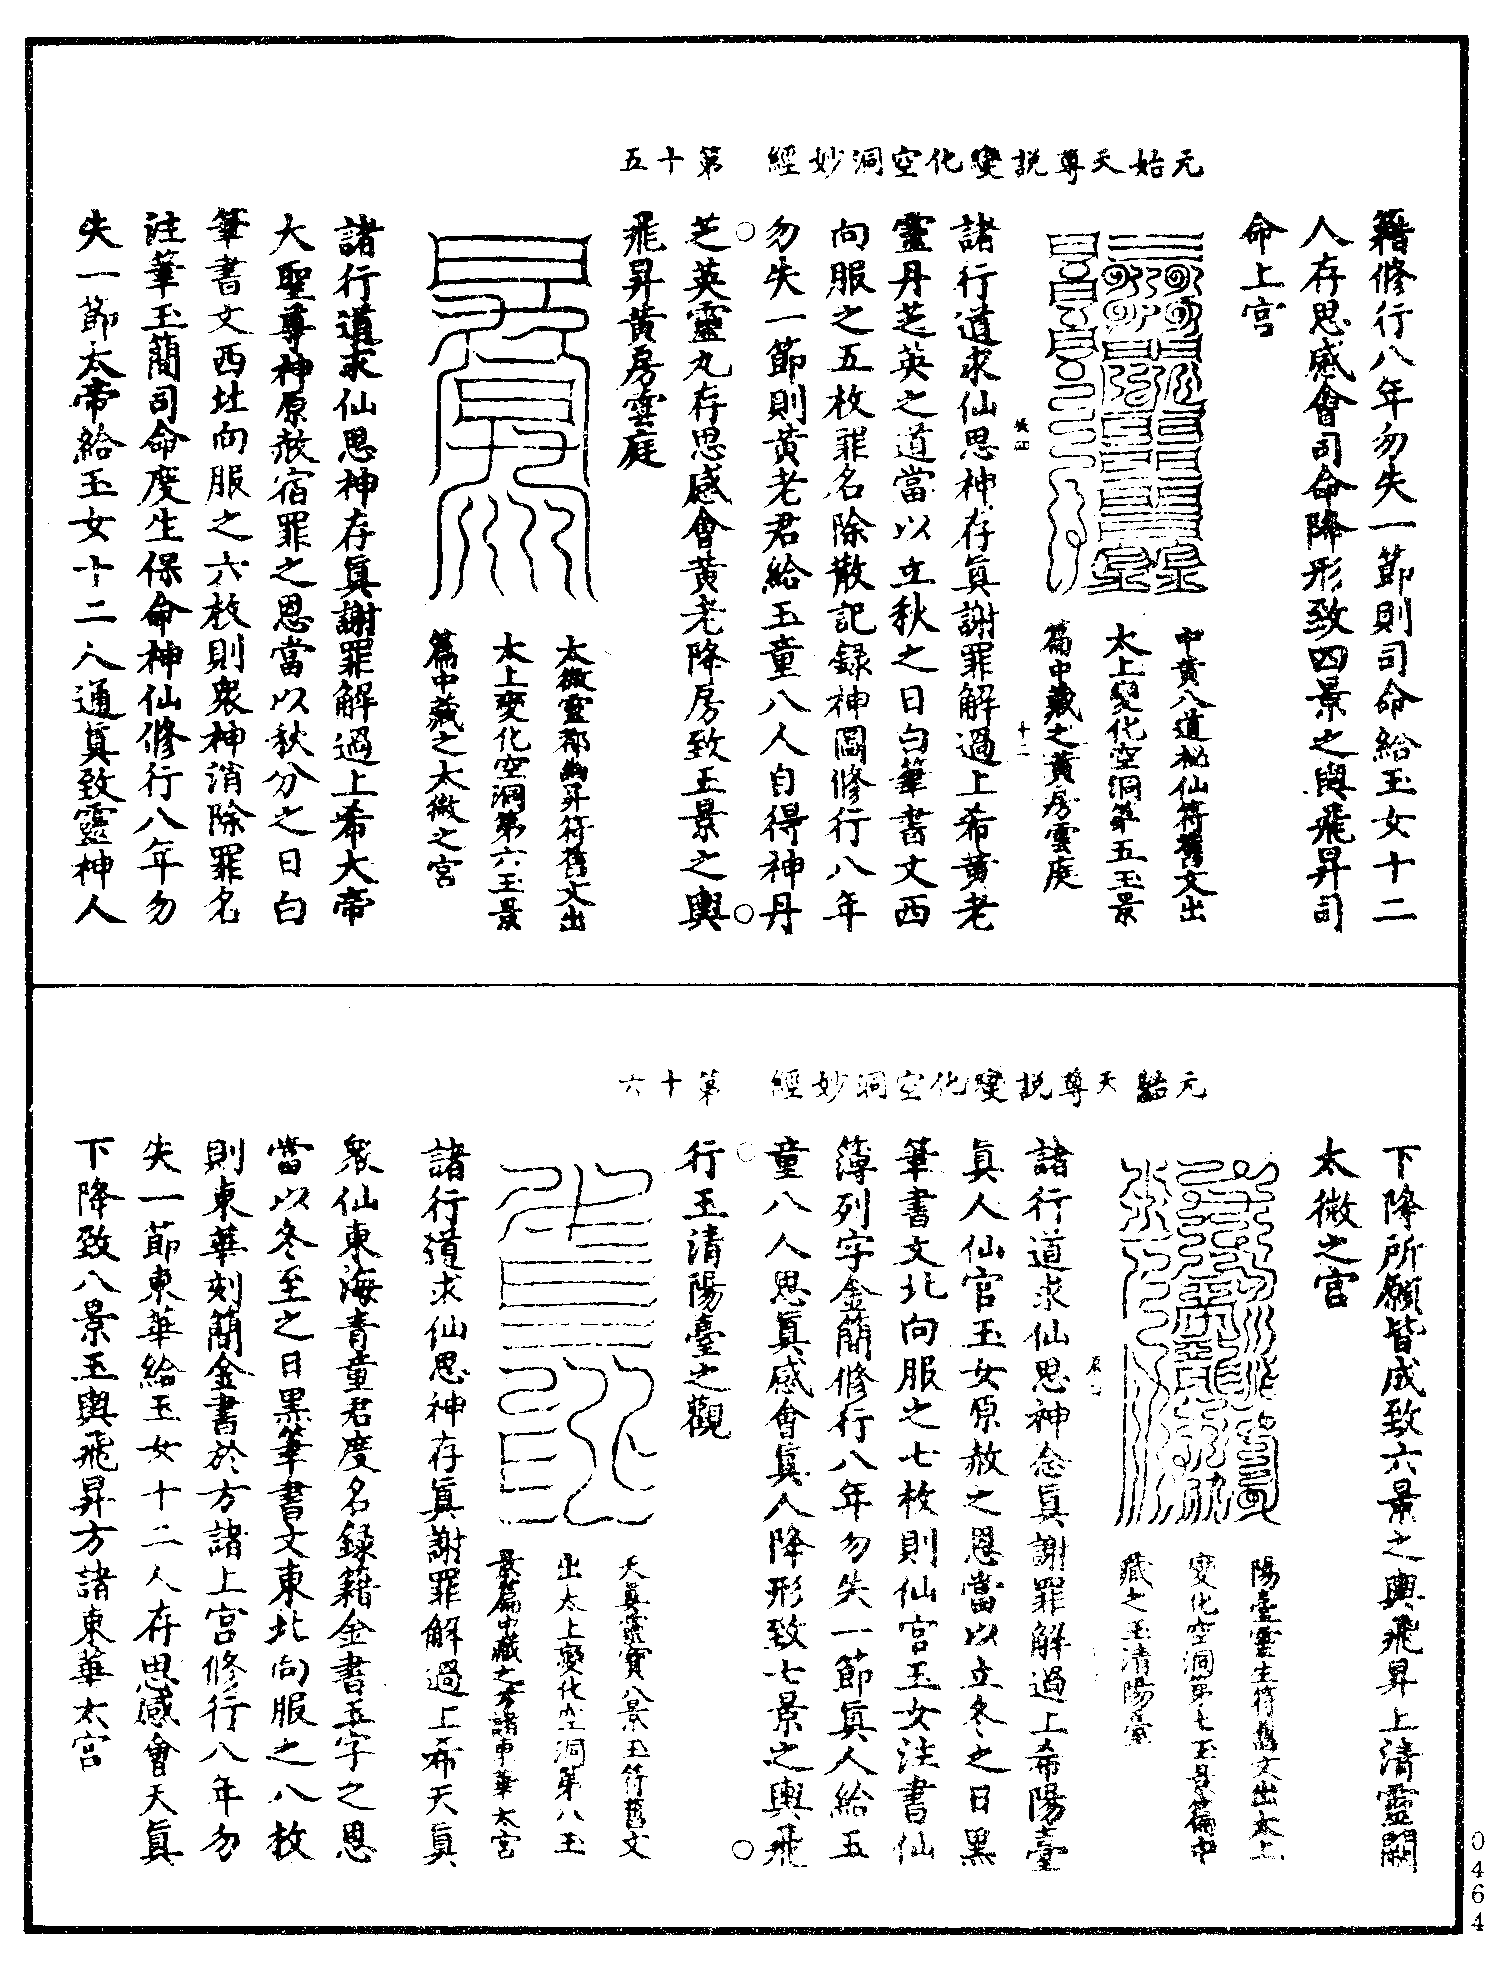 元始天尊說變化空洞妙經　第十五
籍修行八年勿失一節則司命給玉女十二
人存思感會司命降形致四景之輿飛昇司
命上宮
中黃八道祕仙符舊文出
太上變化空洞第五玉景
篇中藏之黃房雲庭
諸行道求仙思神存真謝罪解過上希黃老
靈丹芝英之道當以立秋之日白筆書文西
向服之五枚罪名除散記錄神圖修行八年
勿失一節則黃老君給玉童八人自得神丹
芝英靈丸存思感會黃老降房致玉景之輿
飛昇黃房雲庭
太微靈都幽昇符舊文出
太上變化空洞第六玉景
篇中藏之太微之宮
諸行道求仙思神存真謝罪解過上希大帝
大聖尊神原赦宿罪之恩當以秋分之日白
筆書文西北向服之六枚則衆神消除罪名
注筆玉簡司命度生保命神仙修行八年勿
失一節太帝給玉女十二人通真致靈神人
元始天尊說變化空洞妙經　第十六
下降所願皆成致六景之輿飛昇上清靈闕
太微之宮
陽臺靈生符舊文出太上
變化空洞第七玉景篇中
藏之玉清陽臺
諸行道求仙思神念真謝罪解過上希陽臺
真人仙官玉女原赦之恩當以立冬之日黑
筆書文北向服之七枚則仙官玉女注書仙
簿列字金簡修行八年勿失一節真人給五
童八人思真感會真人降形致七景之輿飛
行玉清陽臺之觀
天真靈寶八景玉符舊文
出太上變化空洞第八玉
景篇中藏之方諸東華太宮
諸行道求仙思神存真謝罪解過上希天真
衆仙東海青童君度名錄籍金書玉字之恩
當以冬至之日黑筆書文東北向服之八枚
則東華刻簡金書於方諸上宮修行八年勿
失一節東華給玉女十二人存思感會天真
下降致八景玉輿飛昇方諸東華太宮
0464